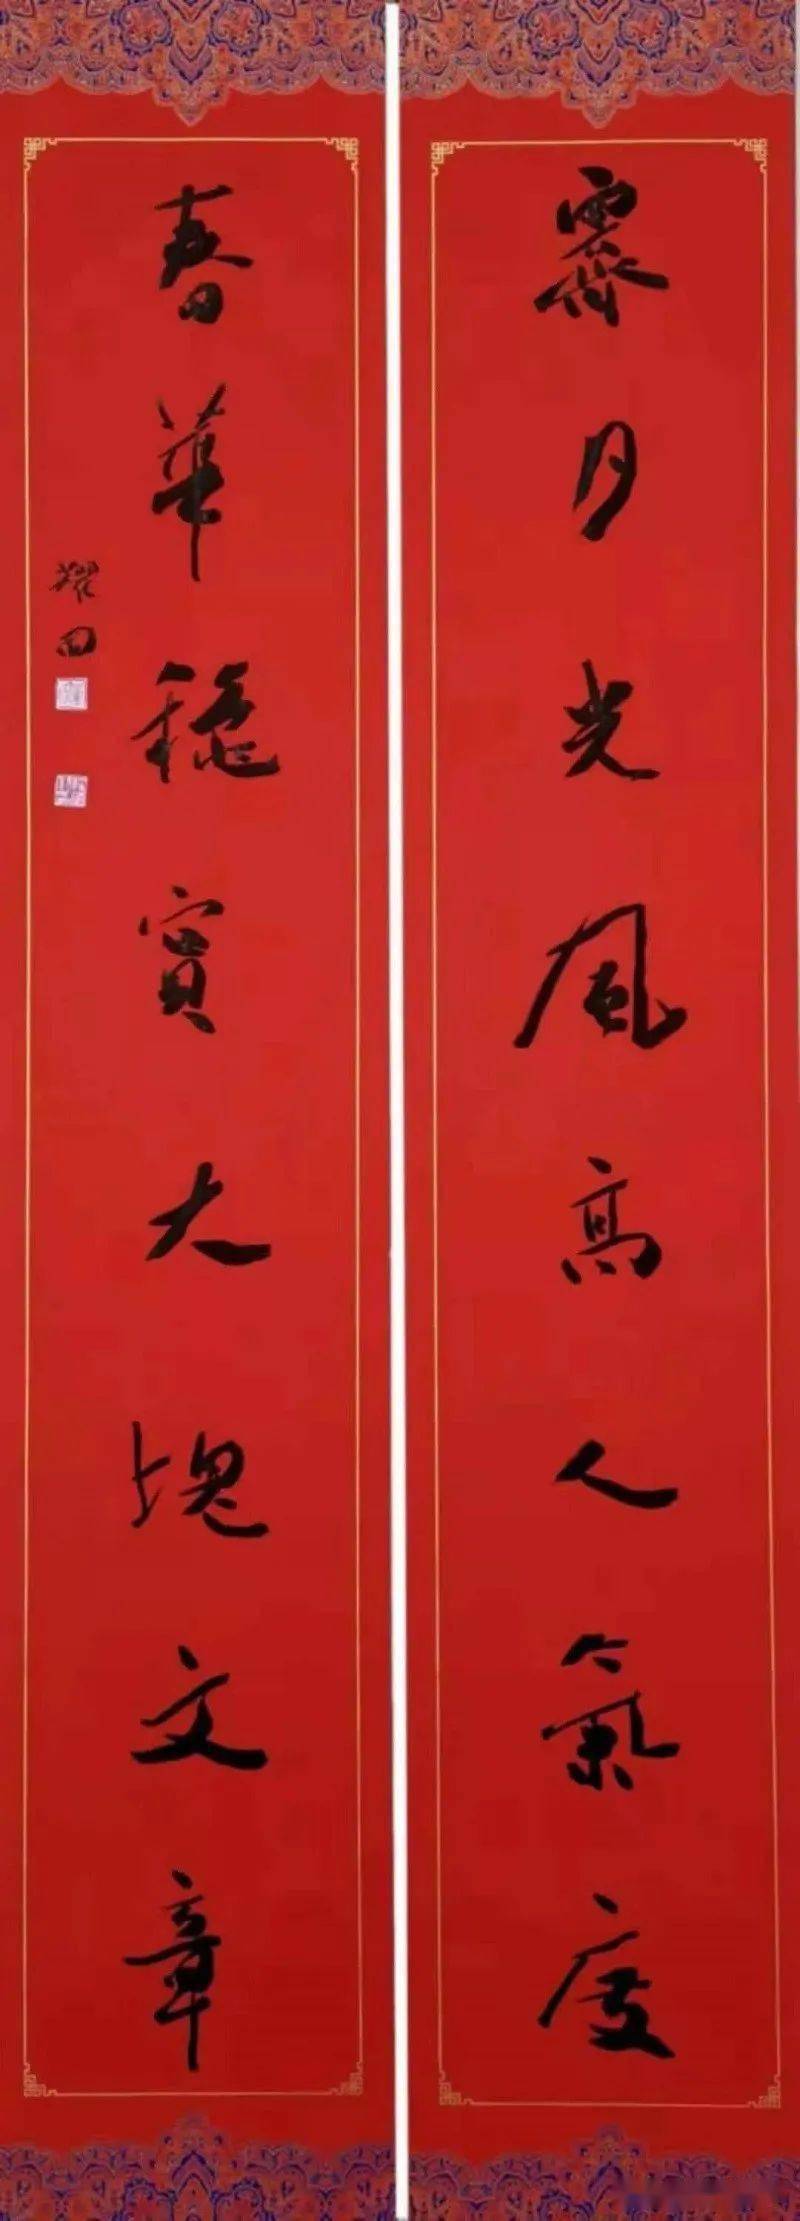 霽月光風高人氣度
春華穐實大塊文章
耀田